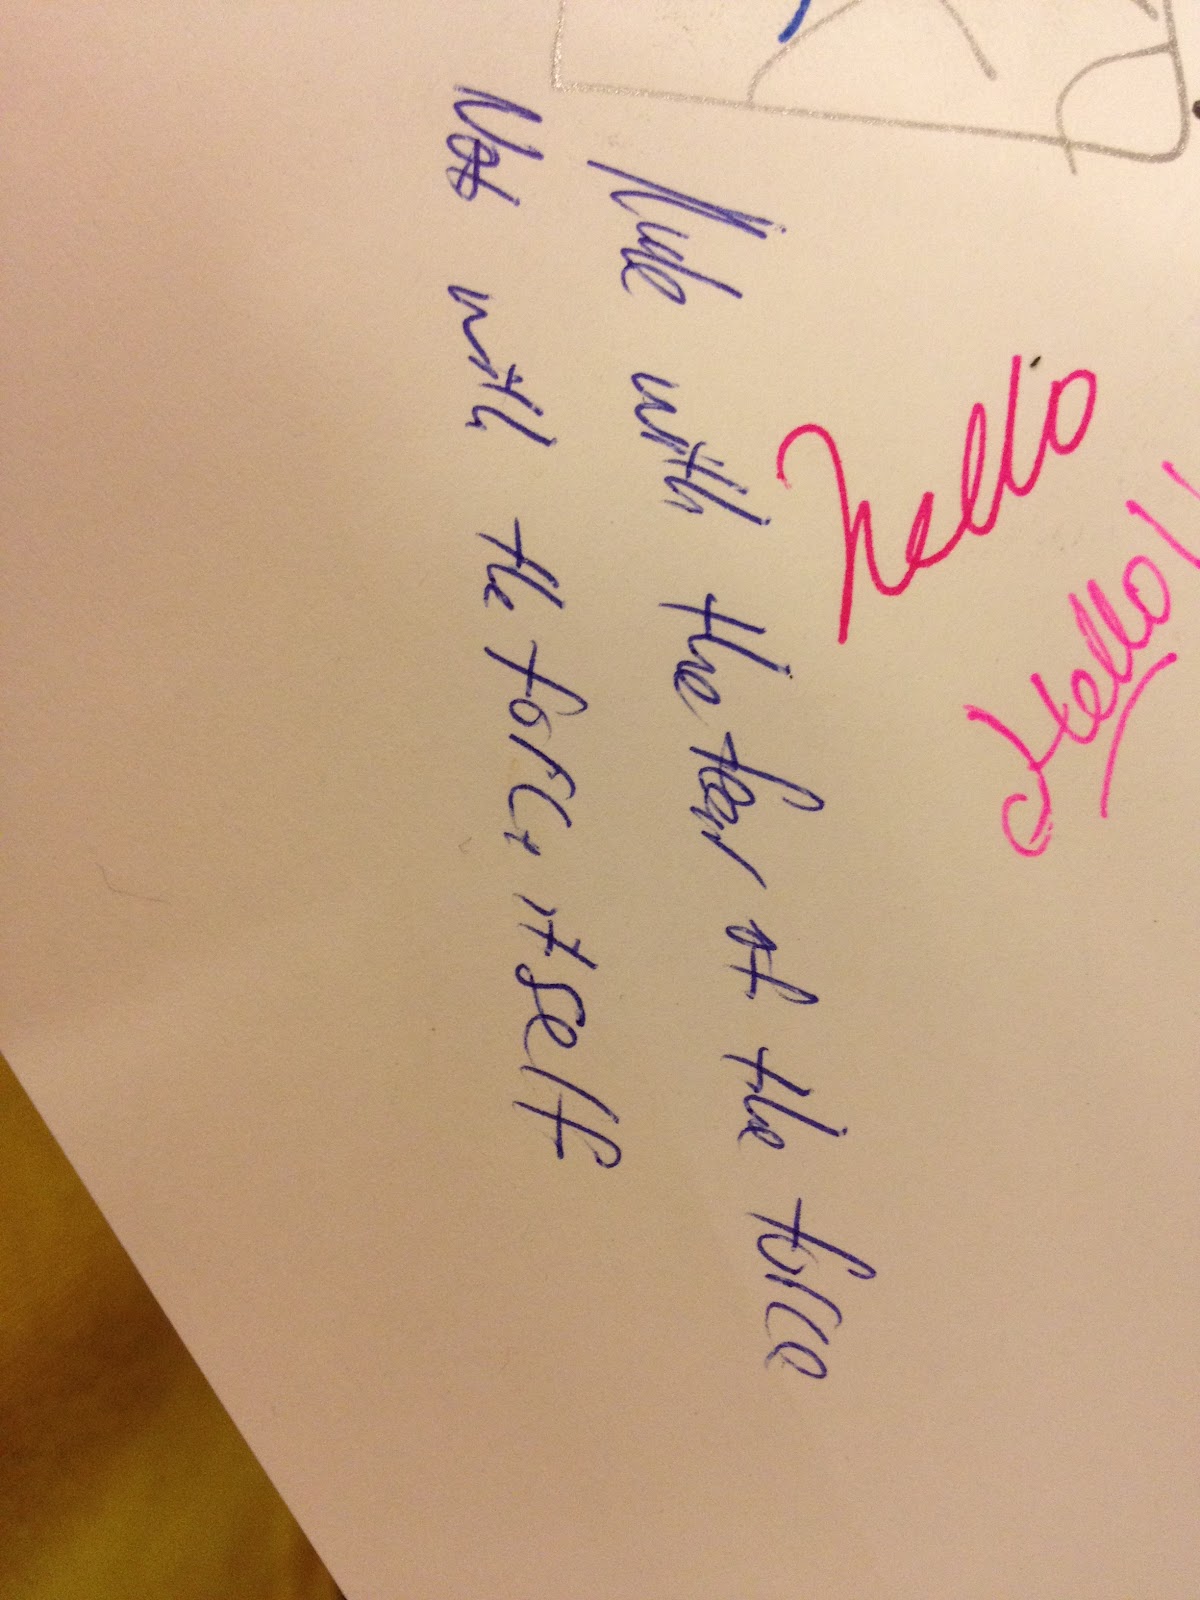 Hello!
hello
with the fear of the force
Not with the force itself